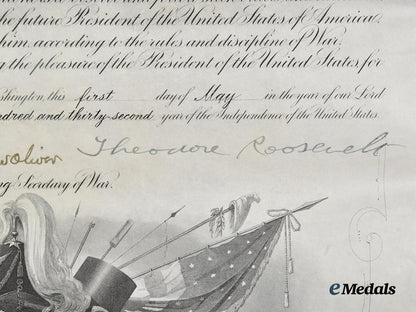 the future President of the United States of America,
him, according to the rules and discipline of War.
the pleasure of the President of the United States, for
ashington, this first day of May in the year of our Lord
ndred and thirty-second year of the Independence of the United States.
Oliver Theodore Roosevelt
ng Secretary of War.
eMedals